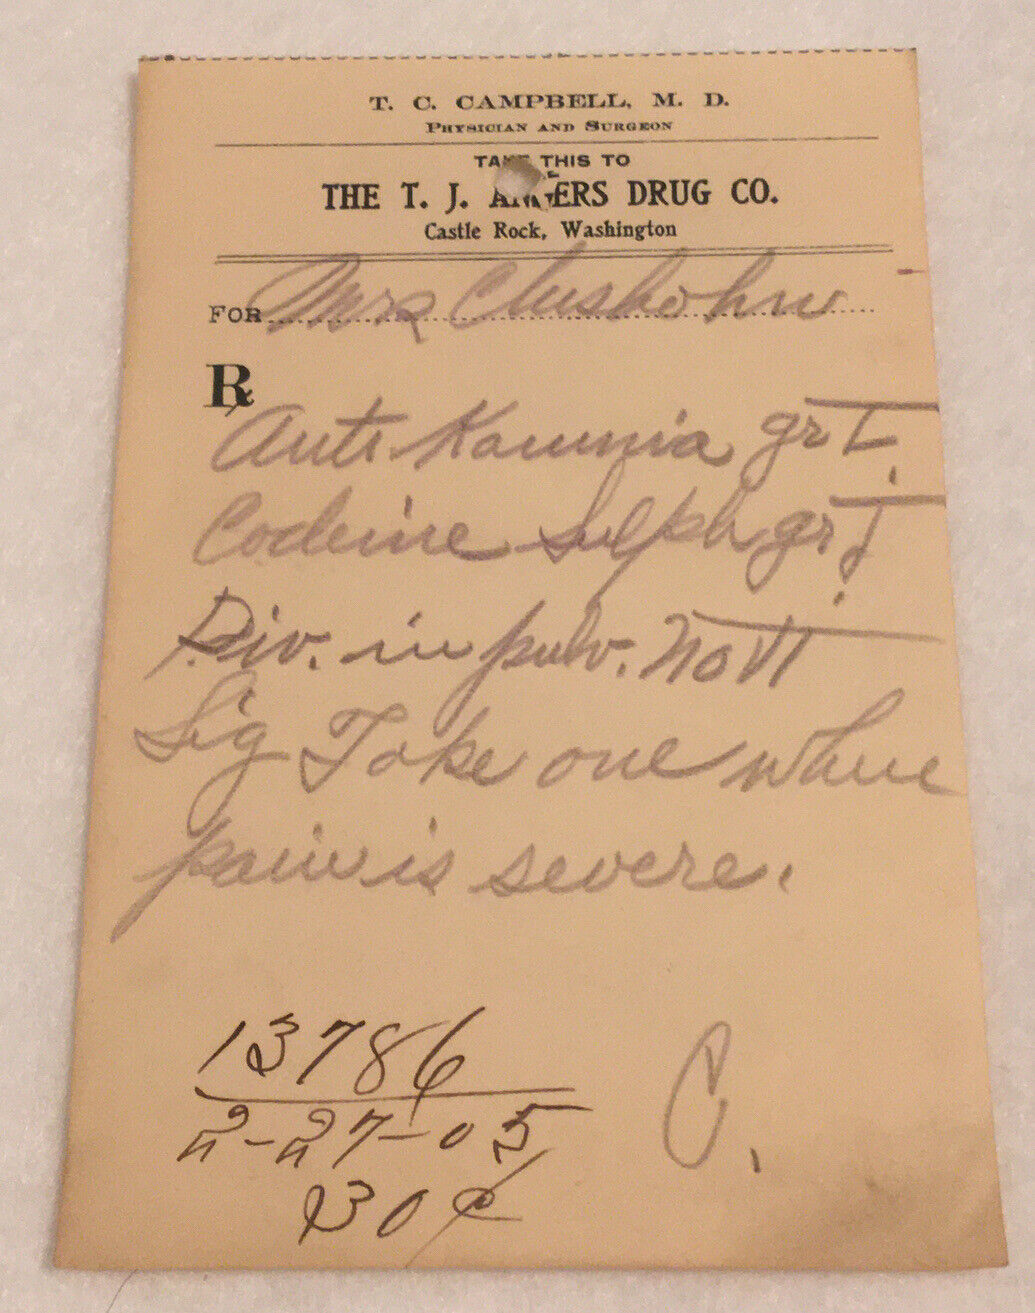 T. C. CAMPBELL, M. D.
PHYSICIAN AND SURGEON
TAKE THIS TO
THE T. J. ANGERS DRUG CO.
Castle Rock, Washington
FOR Mrs
℞
Anti Kamnia gr
Codeine Sulph gr
Div. in pulv. No VI
Sig Take one when
pain is severe.
13786
2-27-05
30¢
C.